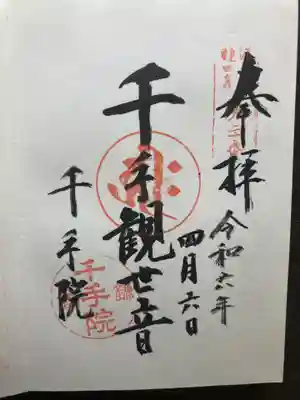 奉拝
令和六年
四月六日
千手観世音
千手院
千手院